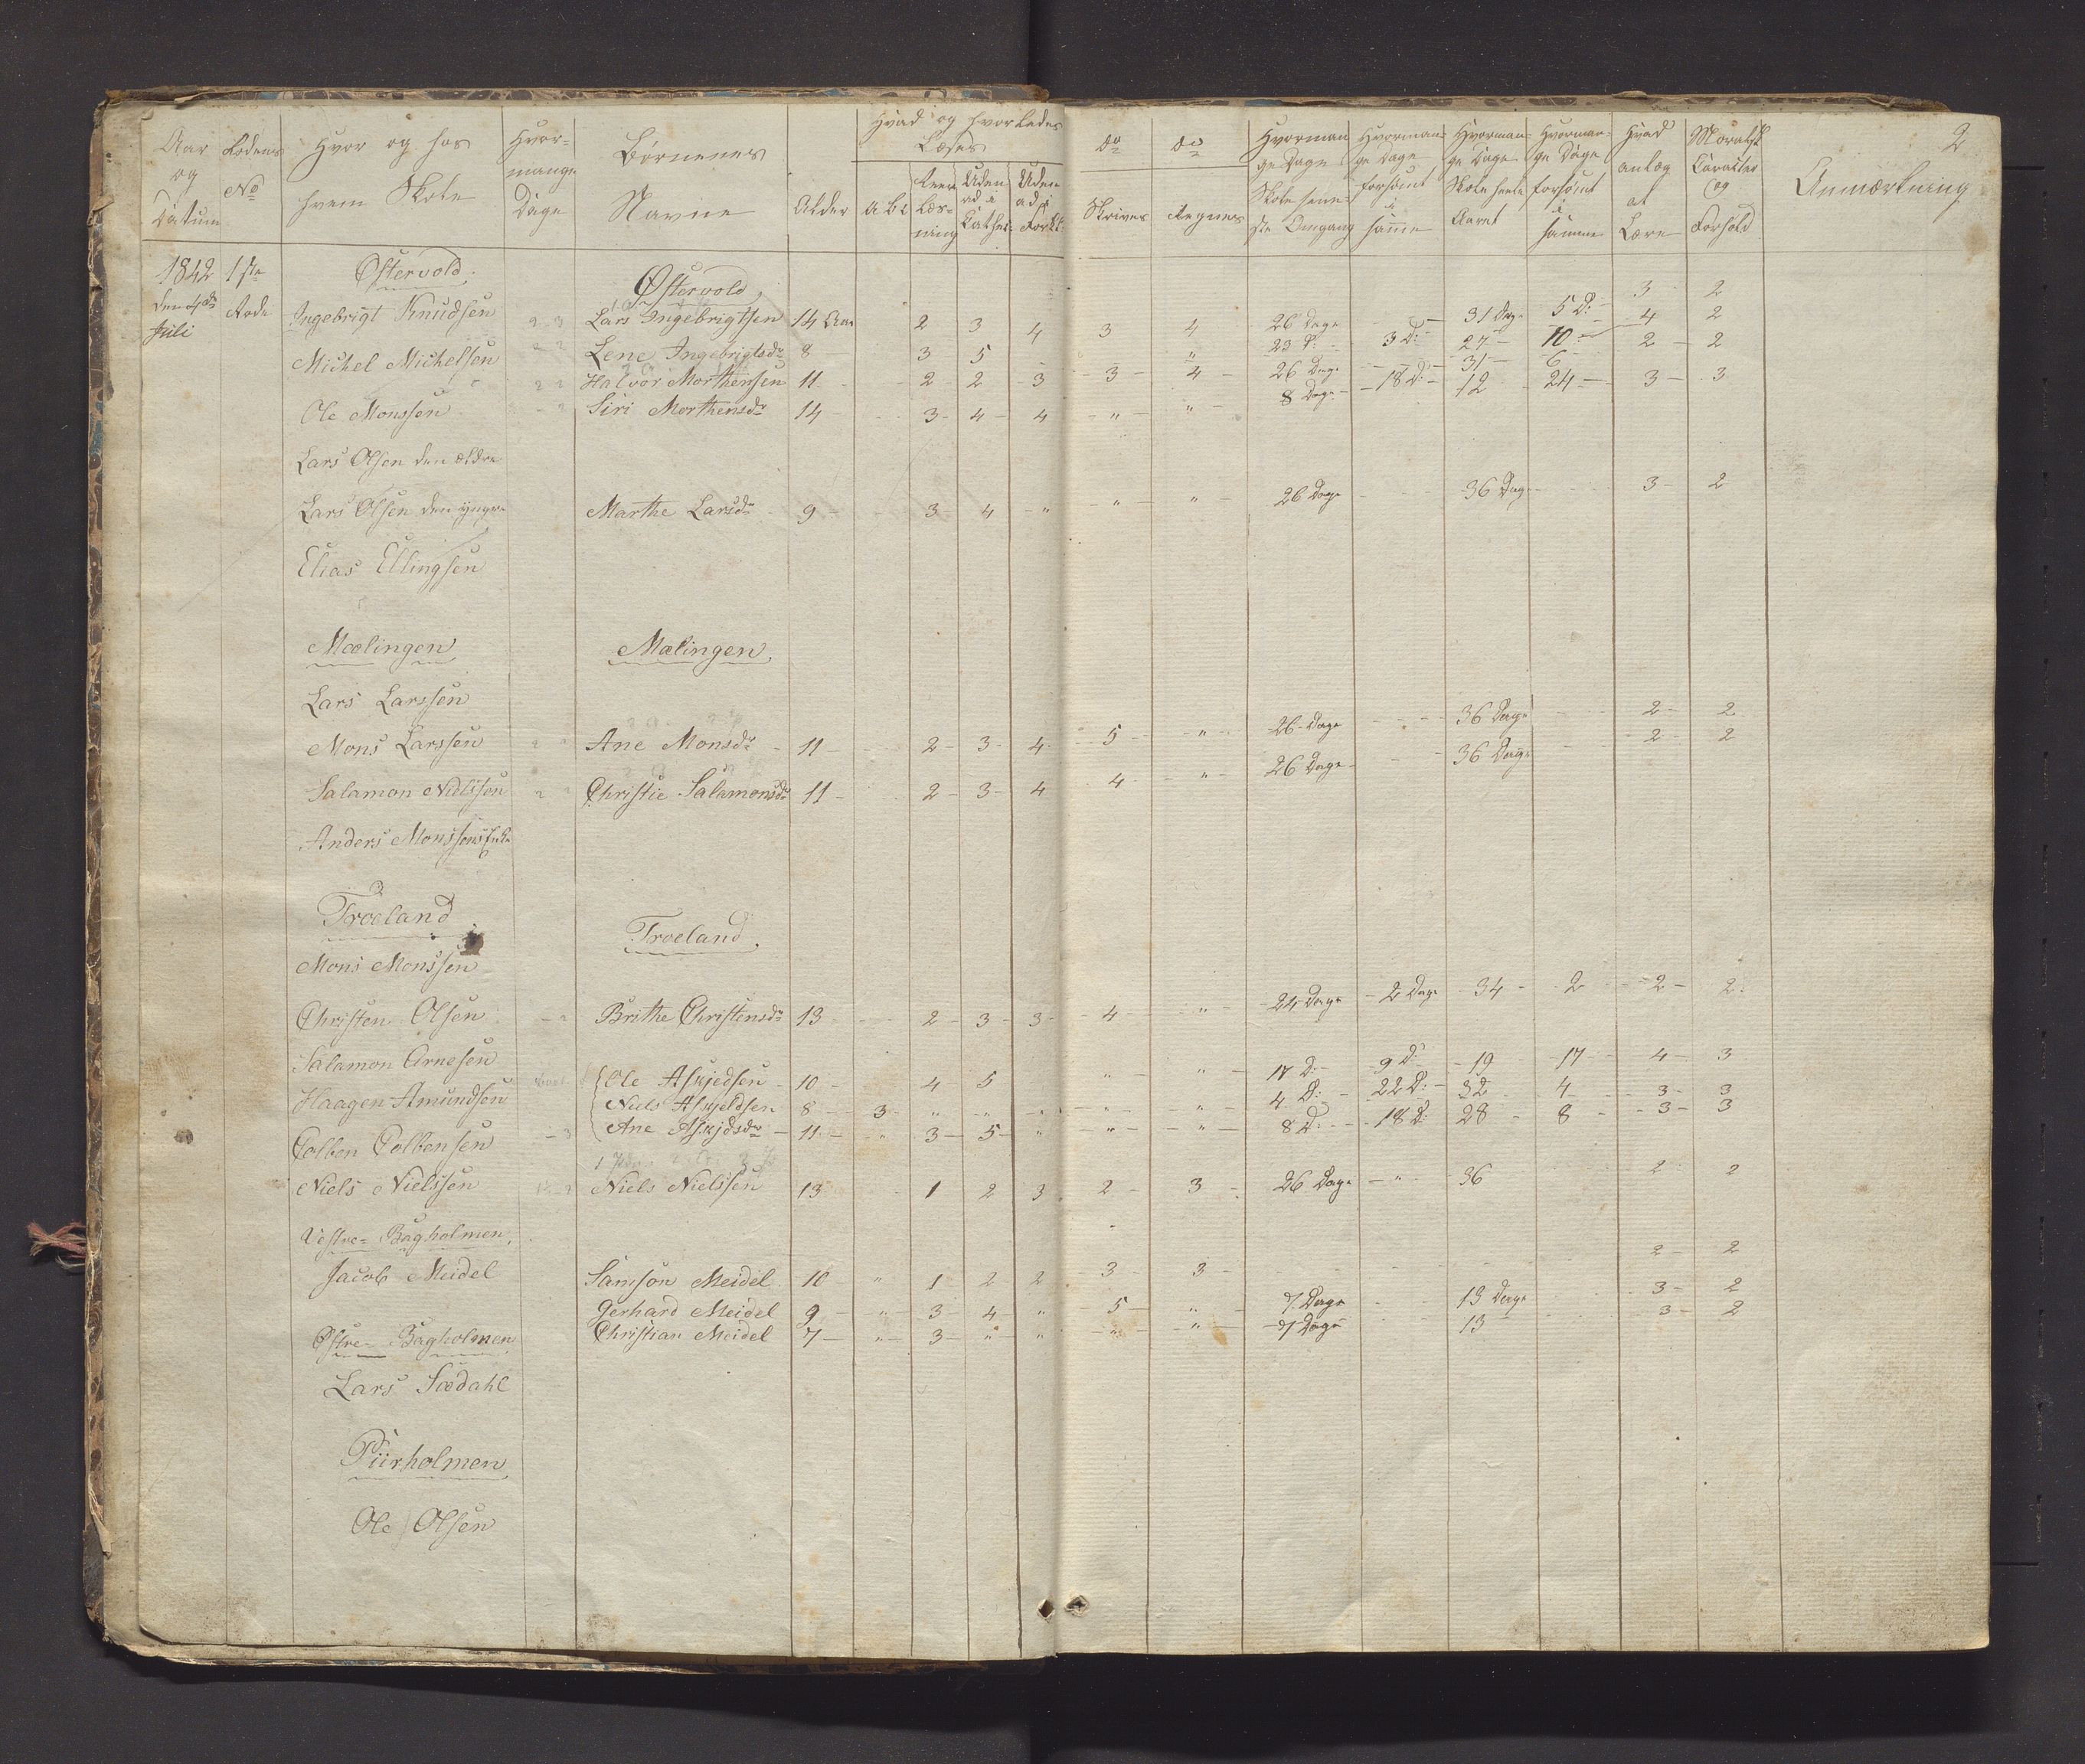 2
Aar og Datum
Rodens No
Hvor og hos hvem Skole
Hvormange Dage
Børnenes Navne
Alder
Hvad og hvorledes Læses
A b c
Reen Læsning
Uden ad i Cathec:
Uden ad i Forkl:
do Skrives
do Regnes
Hvormange Dage Skole seneste Omgang
Hvormange Dage forsømt i samme
Hvormange Dage Skole heele Aaret
Hvormange Dage forsømt i samme
Hvad anlæg at Lære
Moralsk Caracter og Forhold
Anmærkning
1842 1ste Østervold Østervold
den 4de Juli Rode
Ingebrigt Knudsen Lars Ingebrigtsen 14 Aar 2 3 4 3 4 26 Dage 31 Dage 5 D: 3 2
Michel Michelsen Lene Ingebrigtsdr 8 3 5 - " 23 D: 3 D: 27 10 4 2
Halvor Morthensen 11 2 2 3 3 4 26 Dage 31 6 2 2
Ole Monssen Siri Morthensdr 14 3 4 4 " " 8 Dage 18 D: 12 24 3 3
Lars Olsen den ældre
Lars Olsen den yngre Marthe Larsdr 9 3 4 " " " 26 Dage 36 Dage 3 2
Elias Ellingsen
Mælingen Mælingen
Lars Larssen
Mons Larssen Ane Monsdr 11 2 3 4 5 " 26 Dage 36 Dage 2 2
Salamon Nielssen Christie Salamonsdr 11 2 3 4 4 " 26 Dage 36 Dage 2 2
Anders Monssens Enke
Troeland Troeland
Mons Monssen
Christen Olsen Brithe Christensdr 13 2 3 3 4 " 24 Dage 2 Dage 34 2 2 2
Salamon Arnesen
Haagen Amundsen Ole Askjedsen 10 4 5 " " 17 D: 9 D: 19 17 4 3
Niels Askjeldsen 8 3 " " " " " 4 D: 22 D: 32 4 3 3
Colben Colbensen Ane Askjdsdr 11 " 3 5 " " " 8 D: 18 D: 28 8 3 3
Niels Nielssen Niels Nielssen 13 1 2 3 2 3 26 Dage " 36 2 2
Vestre Bagholmen
Jacob Meidel Samson Meidel 10 " 1 2 2 3 3 2 2
Gerhard Meidel 9 " 3 4 " 5 " 7 Dage 13 Dage 3 2
Østre Bagholmen Christian Meidel 7 " 3 " " " " 7 Dage 13 3 2
Lars Sædahl
Piirholmen
Ole Olsen